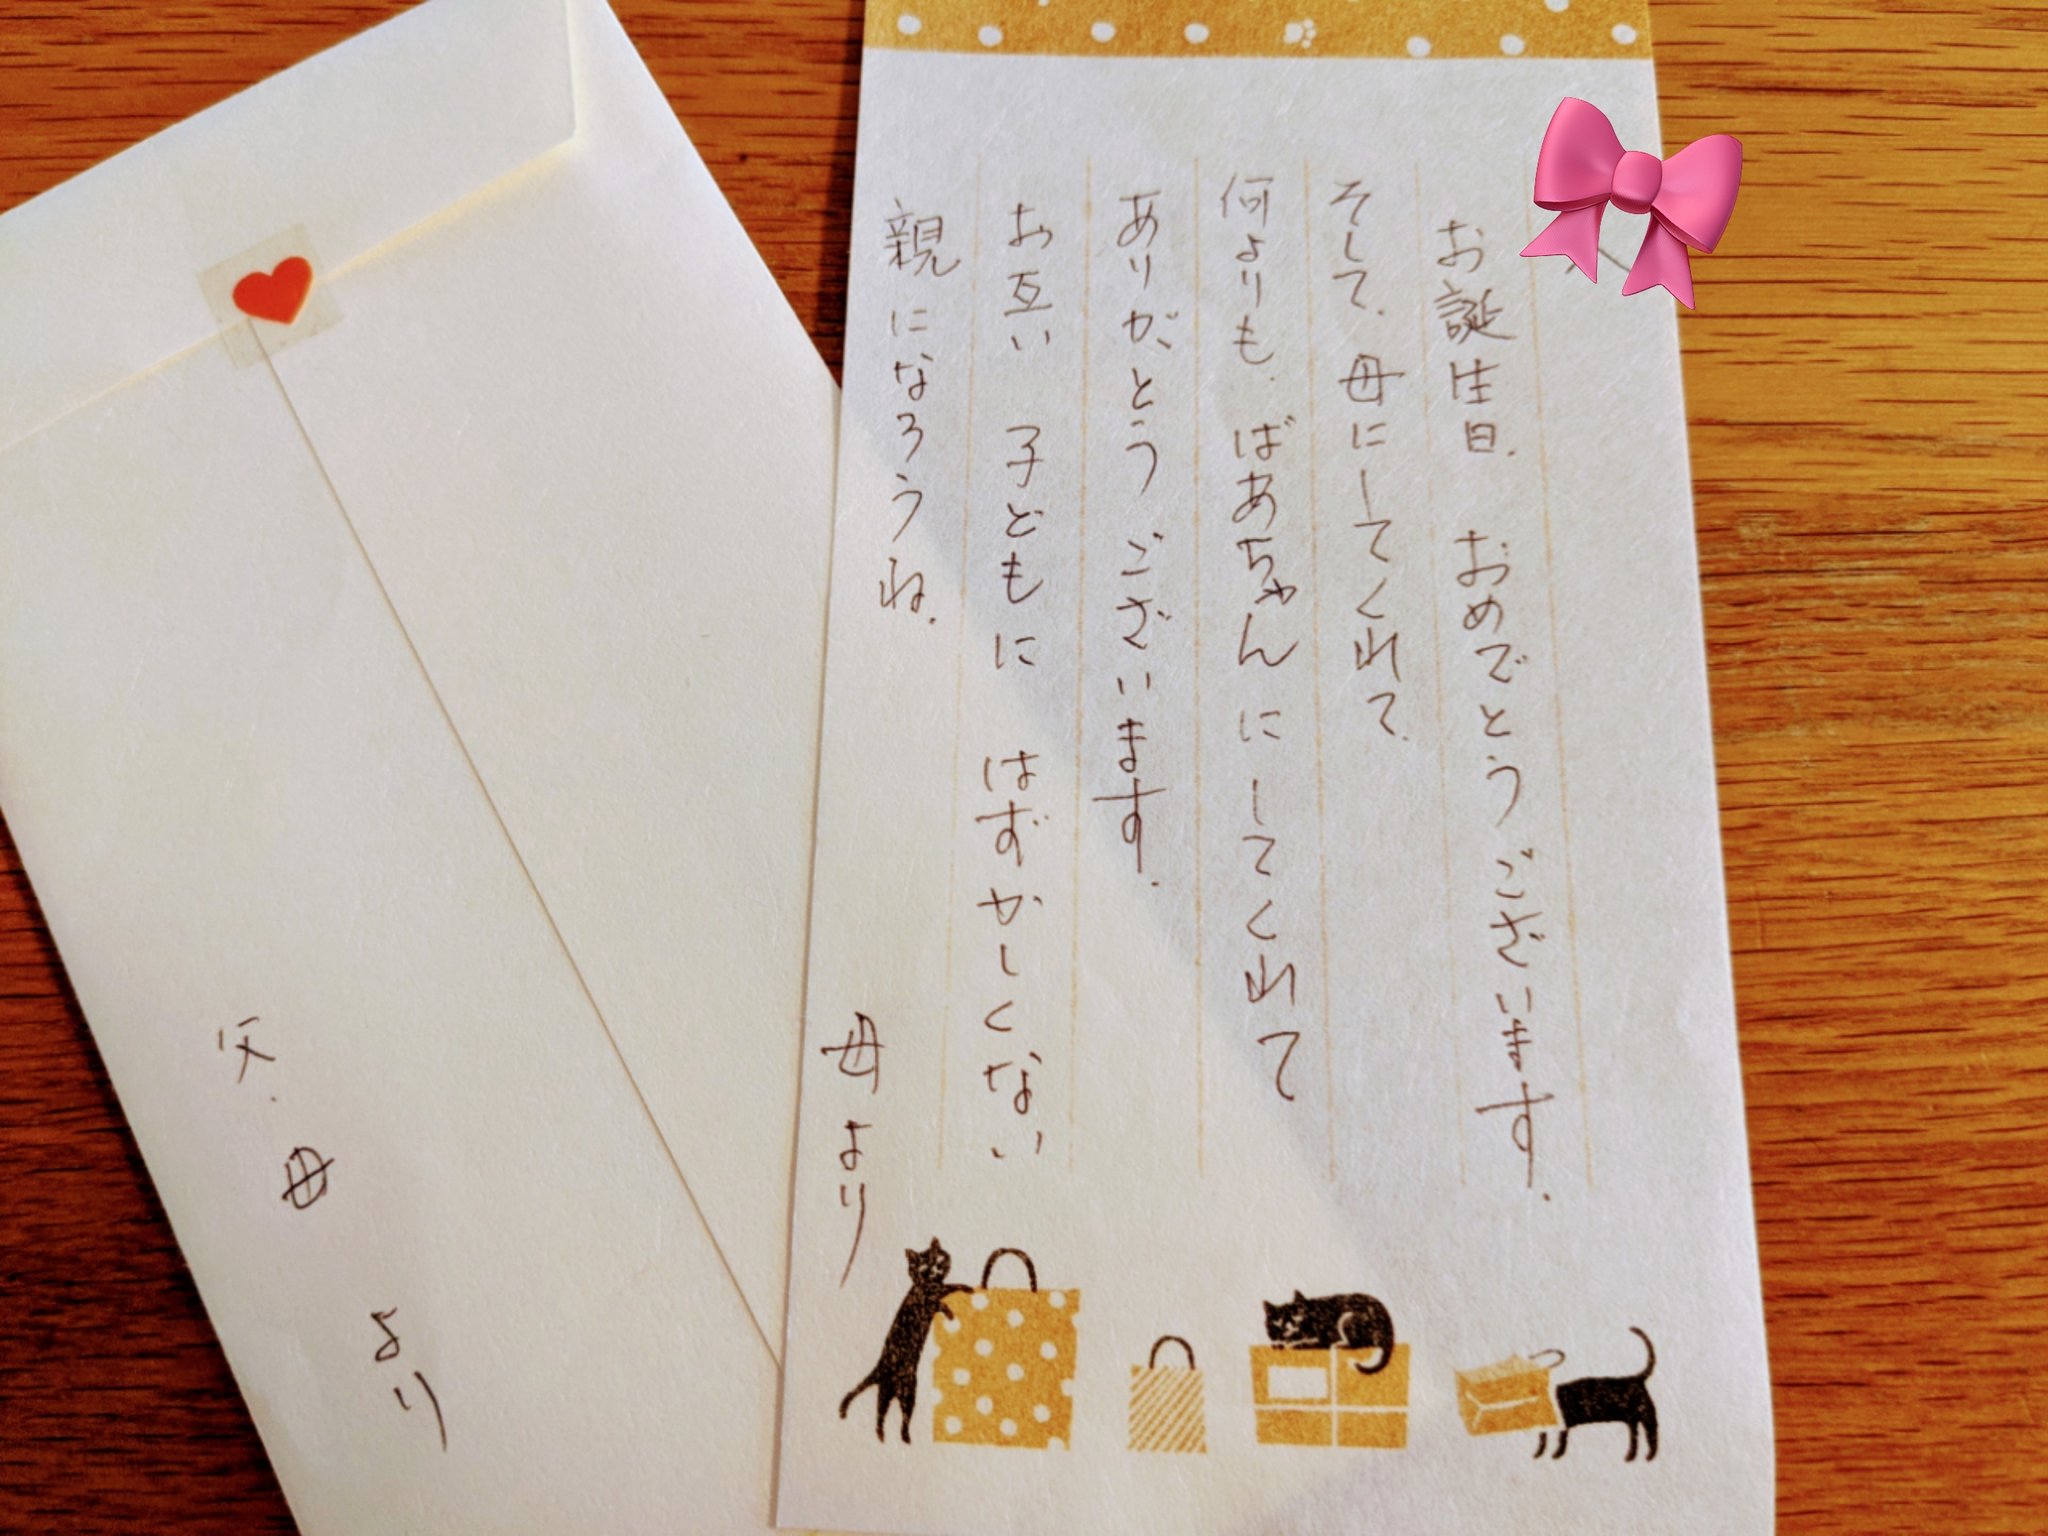 お誕生日、おめでとうございます。
そして、母にしてくれて、
何よりも、ばあちゃんにしてくれて
ありがとうございます。
お互い 子どもに はずかしくない
親になろうね。
母より
父、母 より